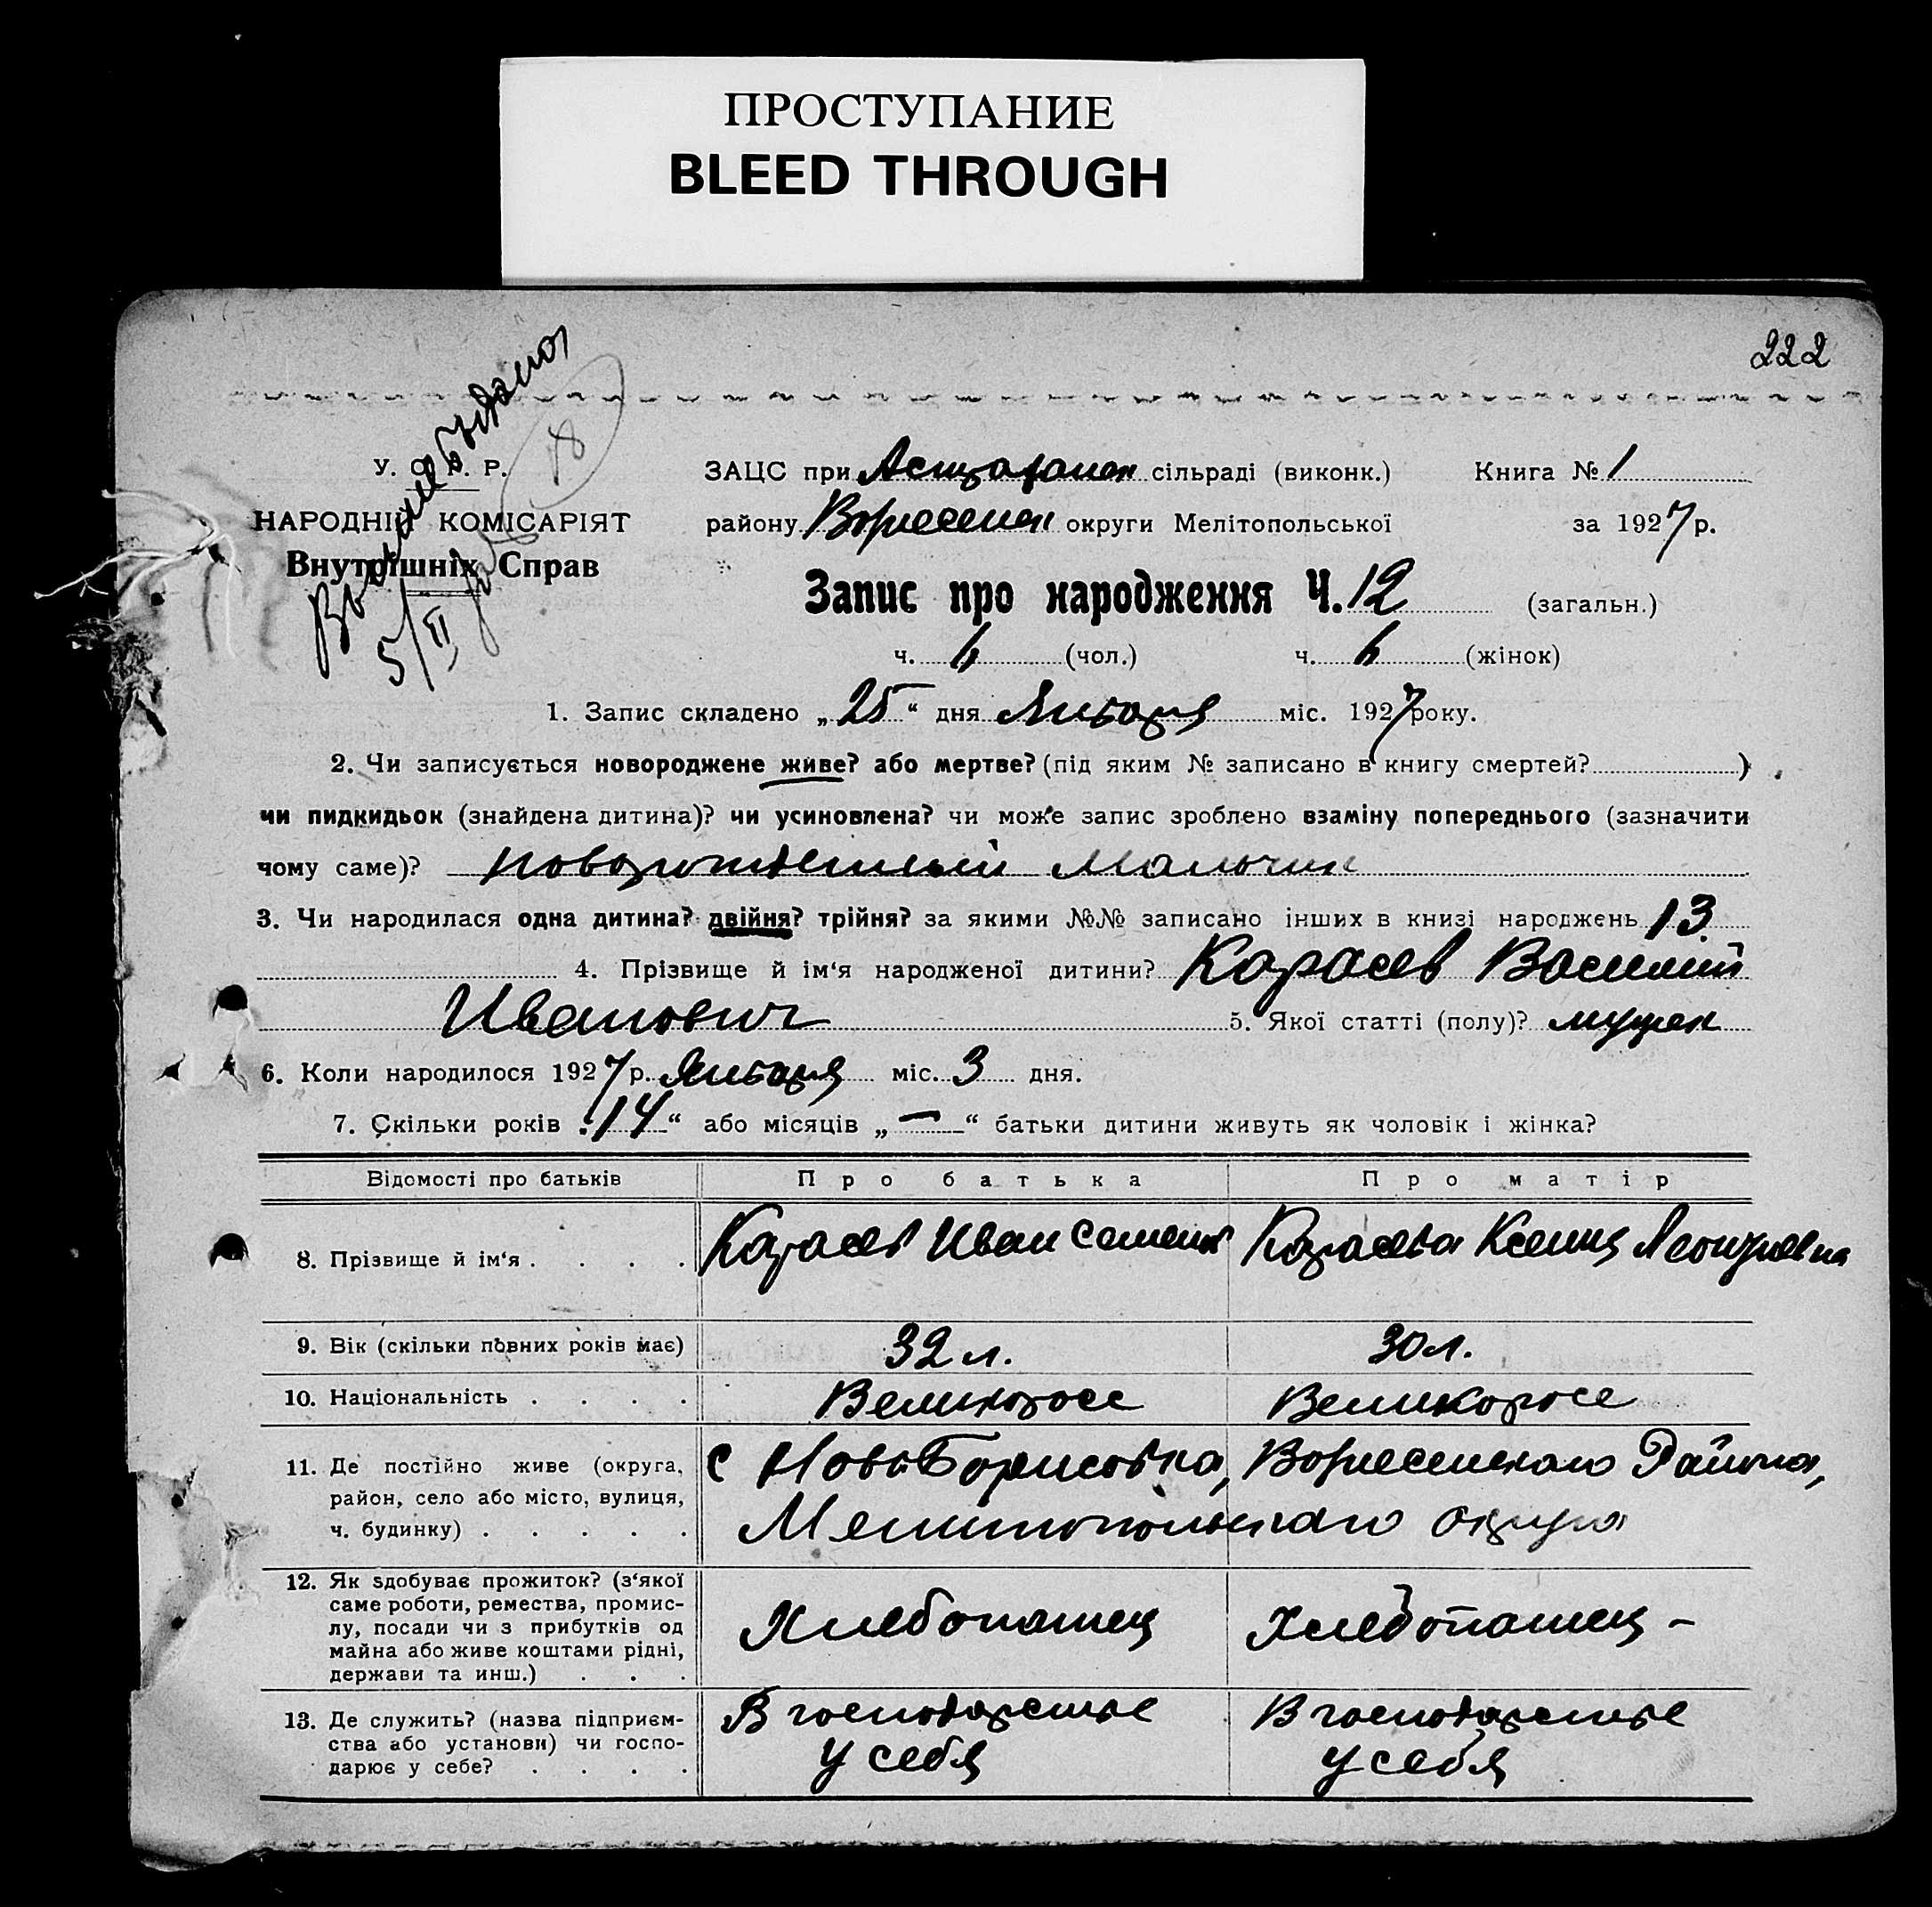 ПРОСТУПАНИЕ
BLEED THROUGH
222
Выпись выдана
18
5/II
У. С. Р. Р.
НАРОДНІЙ КОМІСАРІЯТ
Внутрішніх Справ
ЗАЦС при сільраді (виконк.) Книга № 1
району Вознесенск округи Мелітопольської за 1927 р.
Запис про народження Ч. 12 (загальн.)
ч. 6 (чол.) ч. 6 (жінок)
1. Запис складено „25“ дня Января міс. 1927 року.
2. Чи записується новороджене живе? або мертве? (під яким № записано в книгу смертей? )
чи пидкидьок (знайдена дитина)? чи усиновлена? чи може запис зроблено взаміну попереднього (зазначити
чому саме)? новорожденный Мальчик
3. Чи народилася одна дитина? двійня? трійня? за якими №№ записано інших в книзі народжень 13
4. Прізвище й ім‘я народженої дитини? Карасев Василий
Иванович 5. Якої статті (полу)? мужск
6. Коли народилося 1927 р. Января міс. 3 дня.
7. Скільки років „14“ або місяців „—“ батьки дитини живуть як чоловік і жінка?
Відомості про батьків Про батька Про матір
8. Прізвище й ім‘я . . . . Карасев Иван Семенов Карасева Ксения
9. Вік (скільки повних років має) 32 л. 30 л.
10. Національність . . . . Великоросс Великоросс
11. Де постійно живе (округа, район, село або місто, вулиця, ч. будинку) . . . . . с НовоБорисовка, Вознесенскаго Района,
Мелитопольскаго округа
12. Як здобуває прожиток? (з‘якої саме роботи, ремества, промис-
лу, посади чи з прибутків од
майна або живе коштами рідні,
держави та инш.) . . . Хлебопашец Хлебопашец –
13. Де служить? (назва підприєм-
ства або установи) чи госпо-
дарює у себе? . . . . В господарстве В господарстве
у себя у себя